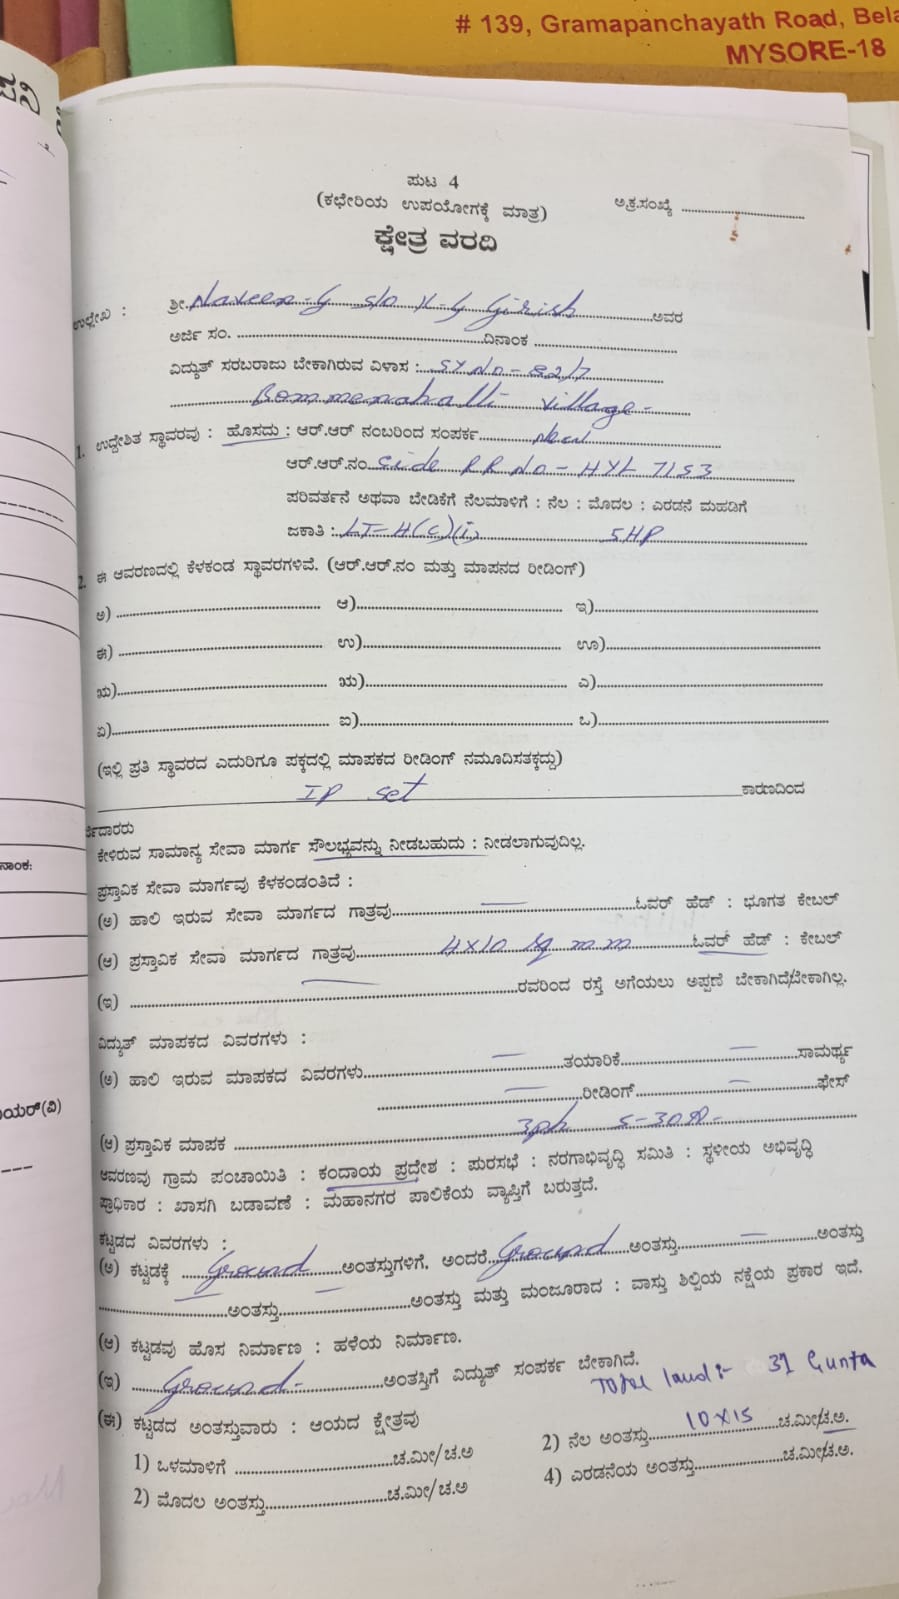 # 139, Gramapanchayath Road, Bela
MYSORE-18
ಪುಟ 4
(ಕಛೇರಿಯ ಉಪಯೋಗಕ್ಕೆ ಮಾತ್ರ)
ಅ.ಕ್ರ.ಸಂಖ್ಯೆ ..............................
ಕ್ಷೇತ್ರ ವರದಿ
ಉಲ್ಲೇಖ : ಶ್ರೀ. Naveen-G s/o K-G Girish ಅವರ
ಅರ್ಜಿ ಸಂ. .............................. ದಿನಾಂಕ ..............................
ವಿದ್ಯುತ್ ಸರಬರಾಜು ಬೇಕಾಗಿರುವ ವಿಳಾಸ : SY No - 82/7
Bommenahalli village -
1. ಉದ್ದೇಶಿತ ಸ್ಥಾವರವು : ಹೊಸದು : ಆರ್.ಆರ್ ನಂಬರಿಂದ ಸಂಪರ್ಕ
ಆರ್.ಆರ್.ನಂ. side RR No - HYL 7153
ಪರಿವರ್ತನೆ ಅಥವಾ ಬೇಡಿಕೆಗೆ ನೆಲಮಾಳಿಗೆ : ನೆಲ : ಮೊದಲ : ಎರಡನೆ ಮಹಡಿಗೆ
ಜಕಾತಿ : LT-4(c)(i) 5HP
2. ಈ ಆವರಣದಲ್ಲಿ ಕೆಳಕಂಡ ಸ್ಥಾವರಗಳಿವೆ. (ಆರ್.ಆರ್.ನಂ ಮತ್ತು ಮಾಪನದ ರೀಡಿಂಗ್)
ಅ) .............................. ಆ) .............................. ಇ) ..............................
ಈ) .............................. ಉ) .............................. ಊ) ..............................
ಋ) .............................. ಋ) .............................. ಎ) ..............................
ಏ) .............................. ಐ) .............................. ಒ) ..............................
(ಇಲ್ಲಿ ಪ್ರತಿ ಸ್ಥಾವರದ ಎದುರಿಗೂ ಪಕ್ಕದಲ್ಲಿ ಮಾಪಕದ ರೀಡಿಂಗ್ ನಮೂದಿಸತಕ್ಕದ್ದು)
IP set ಕಾರಣದಿಂದ
ರ್ಜಿದಾರರು
ಕೇಳಿರುವ ಸಾಮಾನ್ಯ ಸೇವಾ ಮಾರ್ಗ ಸೌಲಭ್ಯವನ್ನು ನೀಡಬಹುದು : ನೀಡಲಾಗುವುದಿಲ್ಲ.
ಪ್ರಸ್ತಾವಿಕ ಸೇವಾ ಮಾರ್ಗವು ಕೆಳಕಂಡಂತಿದೆ :
(ಅ) ಹಾಲಿ ಇರುವ ಸೇವಾ ಮಾರ್ಗದ ಗಾತ್ರವು — ಓವರ್ ಹೆಡ್ : ಭೂಗತ ಕೇಬಲ್
(ಆ) ಪ್ರಸ್ತಾವಿಕ ಸೇವಾ ಮಾರ್ಗದ ಗಾತ್ರವು 4x10 sq mm ಓವರ್ ಹೆಡ್ : ಕೇಬಲ್
(ಇ) — ರವರಿಂದ ರಸ್ತೆ ಅಗೆಯಲು ಅಪ್ಪಣೆ ಬೇಕಾಗಿದೆ/ಬೇಕಾಗಿಲ್ಲ.
ವಿದ್ಯುತ್ ಮಾಪಕದ ವಿವರಗಳು :
(ಅ) ಹಾಲಿ ಇರುವ ಮಾಪಕದ ವಿವರಗಳು — ತಯಾರಿಕೆ — ಸಾಮರ್ಥ್ಯ
— ರೀಡಿಂಗ್ — ಫೇಸ್
(ಆ) ಪ್ರಸ್ತಾವಿಕ ಮಾಪಕ 3ph 5-30A-
ಆವರಣವು ಗ್ರಾಮ ಪಂಚಾಯಿತಿ : ಕಂದಾಯ ಪ್ರದೇಶ : ಪುರಸಭೆ : ನರಗಾಭಿವೃದ್ಧಿ ಸಮಿತಿ : ಸ್ಥಳೀಯ ಅಭಿವೃದ್ಧಿ
ಪ್ರಾಧಿಕಾರ : ಖಾಸಗಿ ಬಡಾವಣೆ : ಮಹಾನಗರ ಪಾಲಿಕೆಯ ವ್ಯಾಪ್ತಿಗೆ ಬರುತ್ತದೆ.
ಕಟ್ಟಡದ ವಿವರಗಳು :
(ಅ) ಕಟ್ಟಡಕ್ಕೆ Ground ಅಂತಸ್ತುಗಳಿಗೆ. ಅಂದರೆ Ground ಅಂತಸ್ತು — ಅಂತಸ್ತು
— ಅಂತಸ್ತು — ಅಂತಸ್ತು ಮತ್ತು ಮಂಜೂರಾದ : ವಾಸ್ತು ಶಿಲ್ಪಿಯ ನಕ್ಷೆಯ ಪ್ರಕಾರ ಇದೆ.
(ಆ) ಕಟ್ಟಡವು ಹೊಸ ನಿರ್ಮಾಣ : ಹಳೆಯ ನಿರ್ಮಾಣ.
(ಇ) Ground - ಅಂತಸ್ತಿಗೆ ವಿದ್ಯುತ್ ಸಂಪರ್ಕ ಬೇಕಾಗಿದೆ.
Total land :- 31 Gunta
(ಈ) ಕಟ್ಟಡದ ಅಂತಸ್ತುವಾರು : ಆಯದ ಕ್ಷೇತ್ರವು
1) ಒಳಮಾಳಿಗೆ .............................. ಚ.ಮೀ/ಚ.ಅ 2) ನೆಲ ಅಂತಸ್ತು 10x15 ಚ.ಮೀ/ಚ.ಅ.
2) ಮೊದಲ ಅಂತಸ್ತು .............................. ಚ.ಮೀ/ಚ.ಅ 4) ಎರಡನೆಯ ಅಂತಸ್ತು .............................. ಚ.ಮೀ/ಚ.ಅ.
ನಾಂಕ:
ಯರ್(ವಿ)